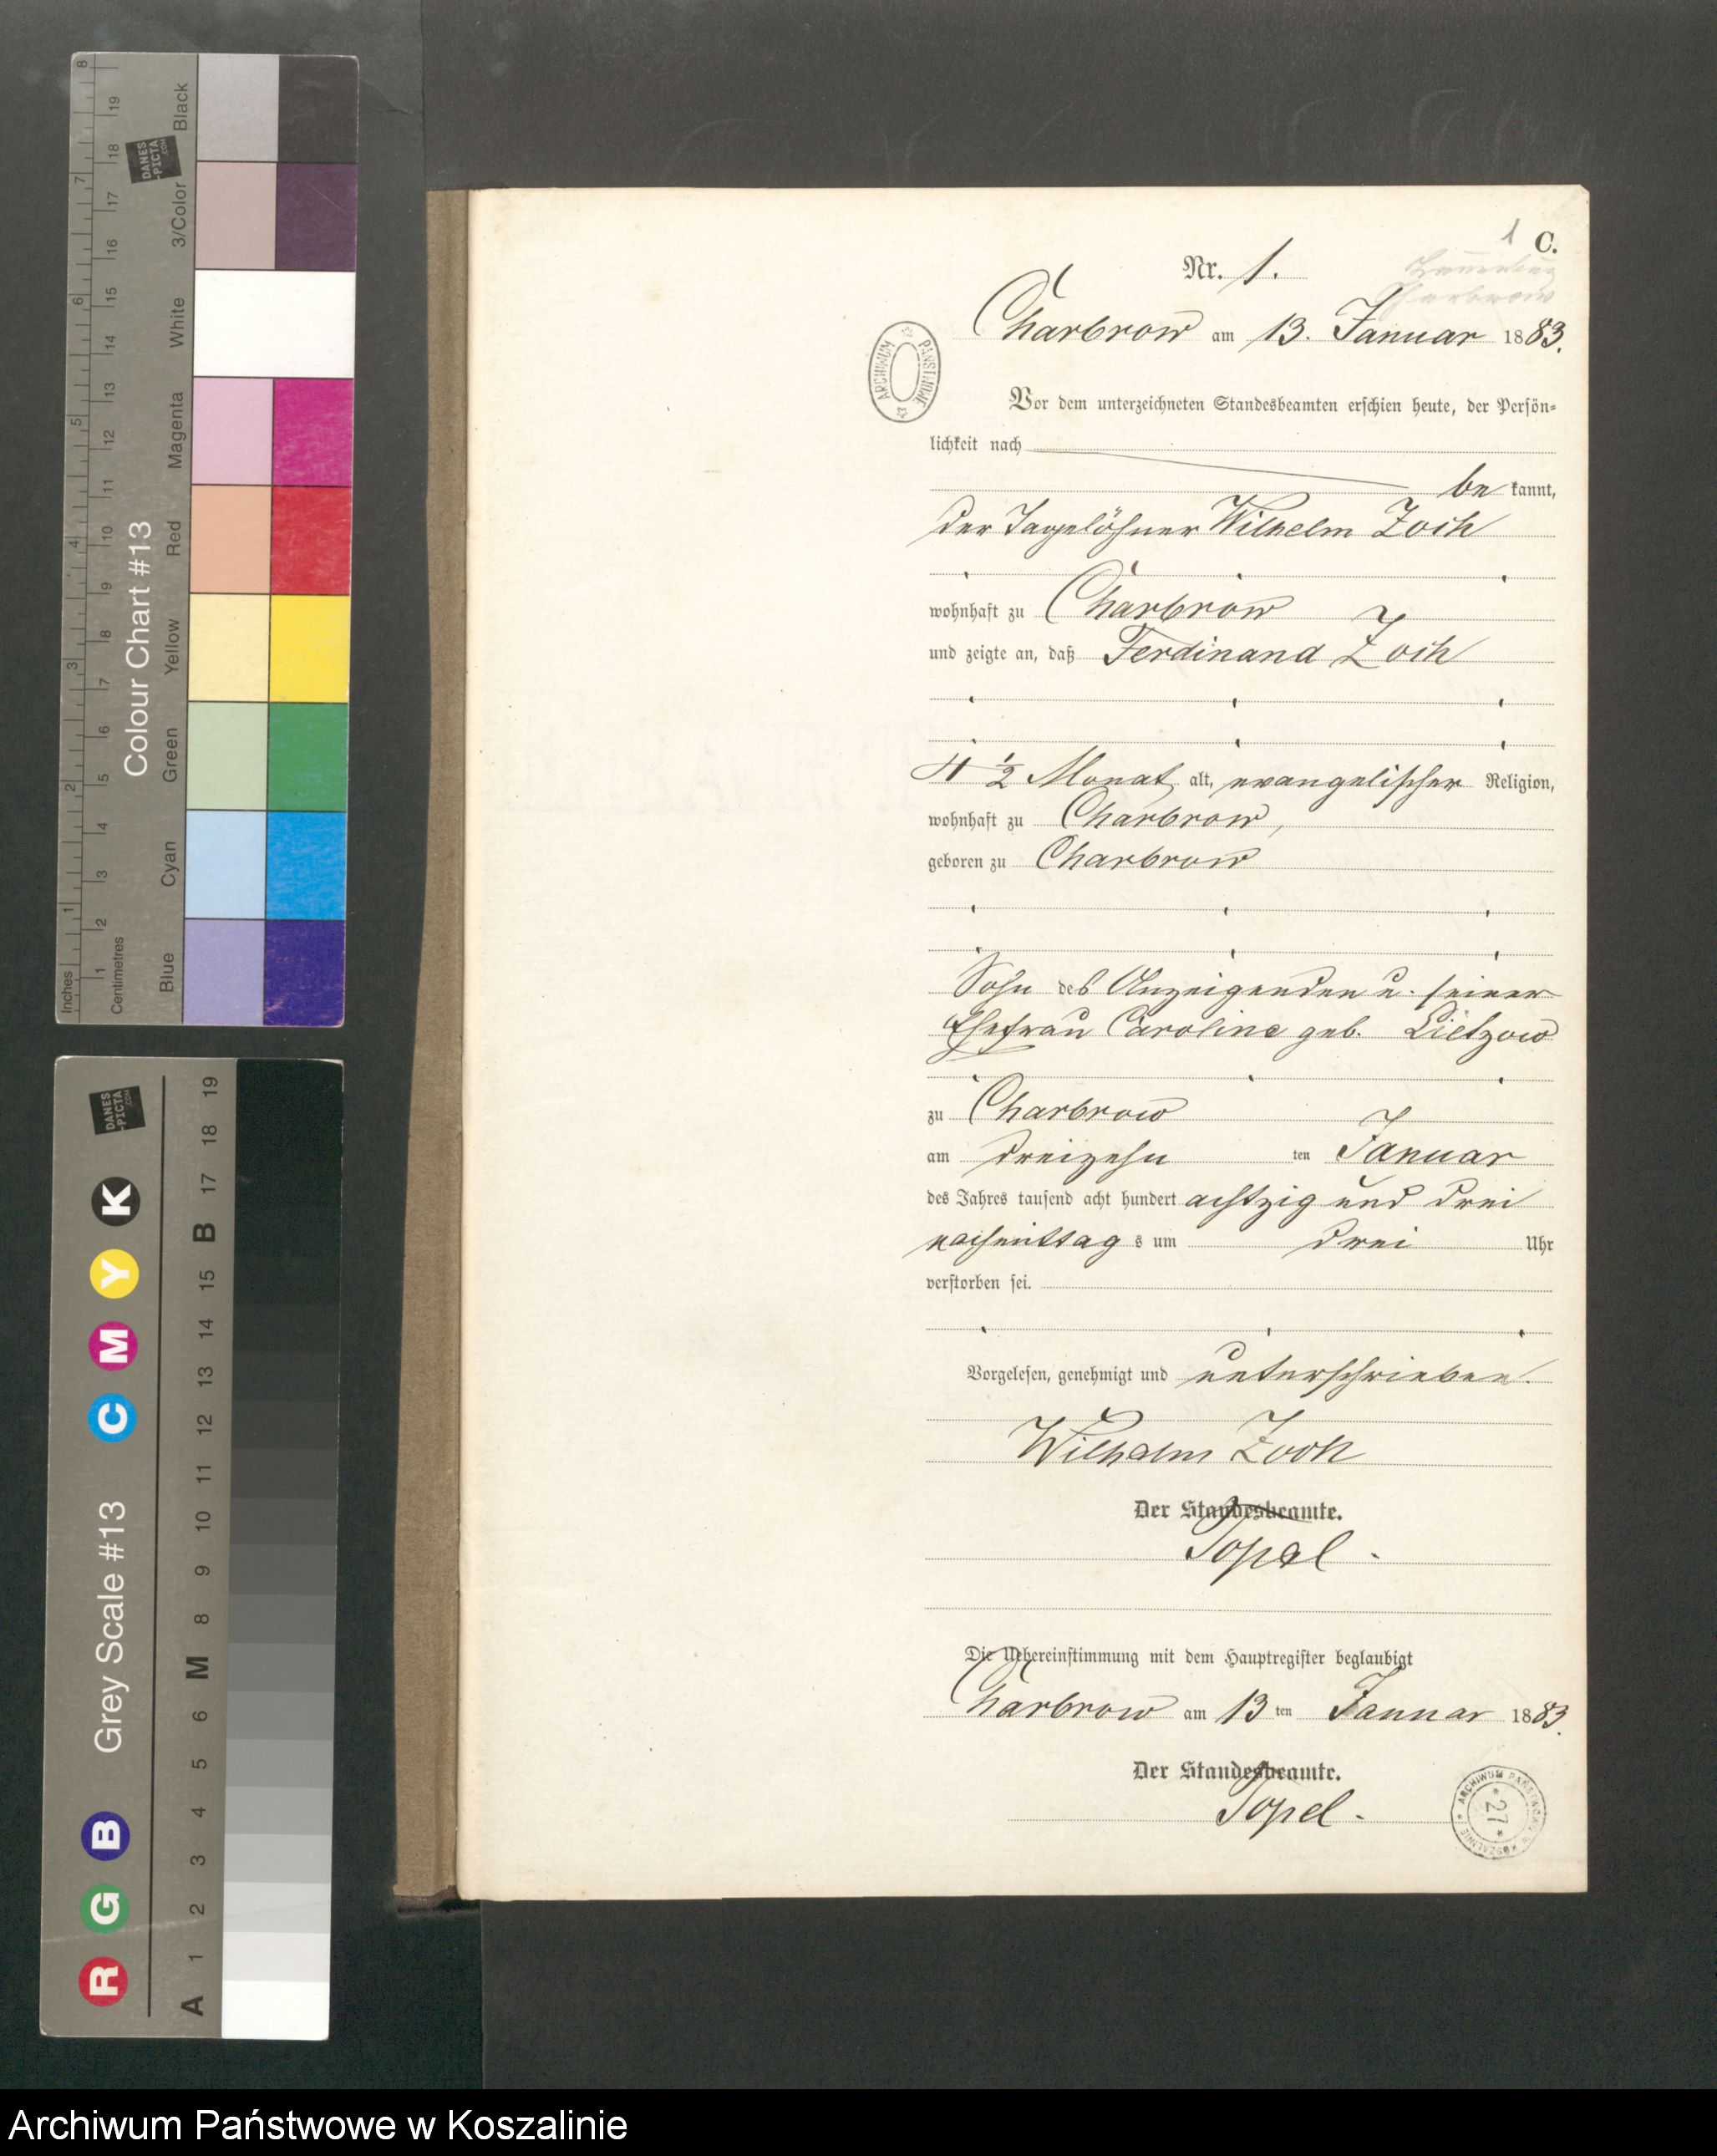 8
7
6
5
4
3
2
1
Inches
19
18
17
16
15
14
13
12
11
10
9
8
7
6
5
4
3
2
1
Centimetres
DANES
-PICTA
.COM
Colour Chart #13
Black
3/Color
White
Magenta
Red
Yellow
Green
Cyan
Blue
DANES
-PICTA
.COM
Grey Scale #13
R G B C M Y K
A 1 2 3 4 5 6 M 8 9 10 11 12 13 14 15 B 17 18 19
1
C.
Nr. 1.
Charbrow
Charbrow am 13. Januar 1883.
ARCHIWUM PAŃSTWOWE
Vor dem unterzeichneten Standesbeamten erschien heute, der Persön-
lichkeit nach
be kannt,
der Tagelöhner Wilhelm Zoch
wohnhaft zu Charbrow
und zeigte an, daß Ferdinand Zoch
4 1/2 Monat alt, evangelischer Religion,
wohnhaft zu Charbrow,
geboren zu Charbrow
Sohn des Anzeigenden u. seiner
Ehefrau Caroline geb. Lietzow
zu Charbrow
am dreizehn ten Januar
des Jahres tausend acht hundert achtzig und drei
nachmittag s um drei Uhr
verstorben sei.
Vorgelesen, genehmigt und unterschrieben.
Wilhelm Zoch
Der Standesbeamte.
Topel.
Die Uebereinstimmung mit dem Hauptregister beglaubigt
Charbrow am 13 ten Januar 1883.
Der Standesbeamte.
Topel.
ARCHIWUM PAŃSTWOWE W KOSZALINIE
* 27 *
Archiwum Państwowe w Koszalinie